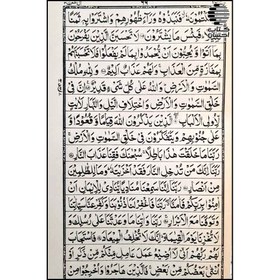 تَكْتُمُوْنَهٗ فَنَبَذُوْهُ وَرَآءَ ظُهُوْرِهِمْ وَاشْتَرَوْا بِهٖ ثَمَنًا
قَلِيْلًا فَبِئْسَ مَا يَشْتَرُوْنَ لَا تَحْسَبَنَّ الَّذِيْنَ يَفْرَحُوْنَ
بِمَاۤ اَتَوْا وَّيُحِبُّوْنَ اَنْ يُّحْمَدُوْا بِمَا لَمْ يَفْعَلُوْا فَلَا تَحْسَبَنَّهُمْ
بِمَفَازَةٍ مِّنَ الْعَذَابِ وَلَهُمْ عَذَابٌ اَلِيْمٌ وَلِلّٰهِ مُلْكُ
السَّمٰوٰتِ وَالْاَرْضِ وَاللّٰهُ عَلٰى كُلِّ شَيْءٍ قَدِيْرٌ اِنَّ فِيْ
خَلْقِ السَّمٰوٰتِ وَالْاَرْضِ وَاخْتِلَافِ الَّيْلِ وَالنَّهَارِ لَاٰيٰتٍ
لِّاُولِي الْاَلْبَابِ الَّذِيْنَ يَذْكُرُوْنَ اللّٰهَ قِيَامًا وَّقُعُوْدًا وَّ
عَلٰى جُنُوْبِهِمْ وَيَتَفَكَّرُوْنَ فِيْ خَلْقِ السَّمٰوٰتِ وَالْاَرْضِ
رَبَّنَا مَا خَلَقْتَ هٰذَا بَاطِلًا سُبْحٰنَكَ فَقِنَا عَذَابَ النَّارِ
رَبَّنَاۤ اِنَّكَ مَنْ تُدْخِلِ النَّارَ فَقَدْ اَخْزَيْتَهٗ وَمَا لِلظّٰلِمِيْنَ
مِنْ اَنْصَارٍ رَبَّنَاۤ اِنَّنَا سَمِعْنَا مُنَادِيًا يُّنَادِيْ لِلْاِيْمَانِ اَنْ
اٰمِنُوْا بِرَبِّكُمْ فَاٰمَنَّا رَبَّنَا فَاغْفِرْ لَنَا ذُنُوْبَنَا وَكَفِّرْ عَنَّا سَيِّاٰتِنَا
وَتَوَفَّنَا مَعَ الْاَبْرَارِ رَبَّنَا وَاٰتِنَا مَا وَعَدْتَّنَا عَلٰى رُسُلِكَ وَلَا
تُخْزِنَا يَوْمَ الْقِيٰمَةِ اِنَّكَ لَا تُخْلِفُ الْمِيْعَادَ فَاسْتَجَابَ
لَهُمْ رَبُّهُمْ اَنِّيْ لَاۤ اُضِيْعُ عَمَلَ عَامِلٍ مِّنْكُمْ مِّنْ ذَكَرٍ اَوْ
اُنْثٰى بَعْضُكُمْ مِّنْ بَعْضٍ فَالَّذِيْنَ هَاجَرُوْا وَاُخْرِجُوْا مِنْ